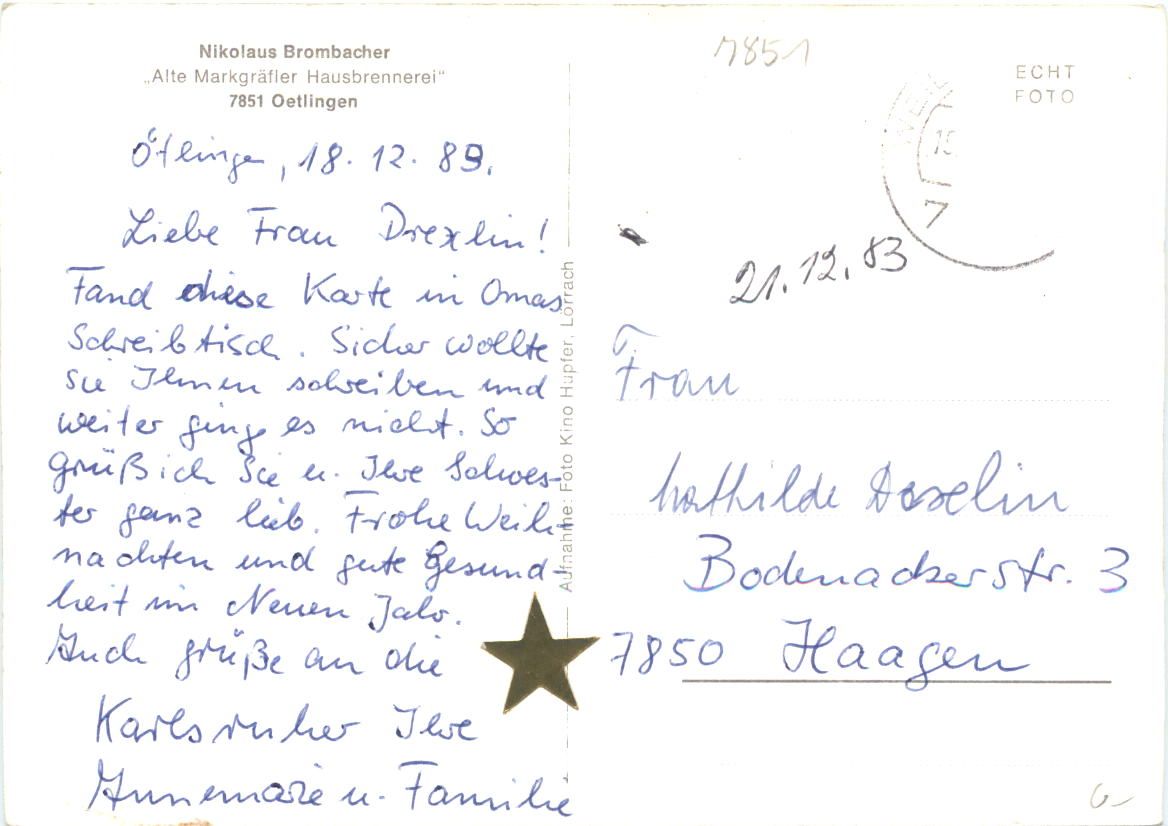 Nikolaus Brombacher
„Alte Markgräfler Hausbrennerei“
7851 Oetlingen
Ötlingen, 18. 12. 89.
Liebe Frau Drexlin!
Fand diese Karte in Omas
Schreibtisch. Sicher wollte
sie Ihnen schreiben und
weiter ging es nicht. So
grüß ich Sie u. Ihre Schwes-
ter ganz lieb. Frohe Weih-
nachten und gute Gesund-
heit im Neuen Jahr.
Auch grüße an die
Karlsruher Ihre
Annemarie u. Familie
Aufnahme: Foto Kino Hupfer, Lörrach
7851
ECHT
FOTO
15
7
21.12.83
Frau
Mathilde Drexlin
Bodenackerstr. 3
7850 Haagen